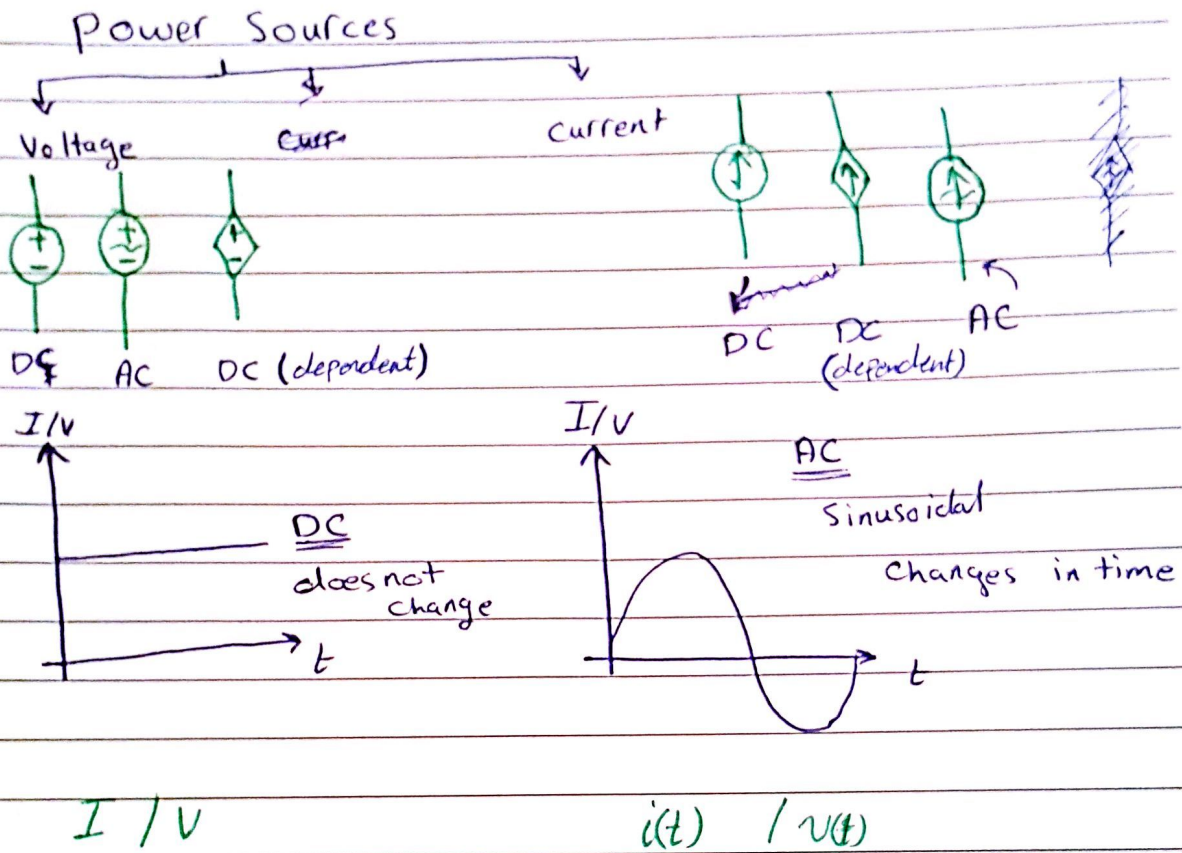 Power Sources
Voltage
Current
DC
AC
DC (dependent)
DC
DC
(dependent)
AC
I/V
DC
does not
change
t
I/V
AC
Sinusoidal
Changes in time
t
I / V
i(t) / v(t)